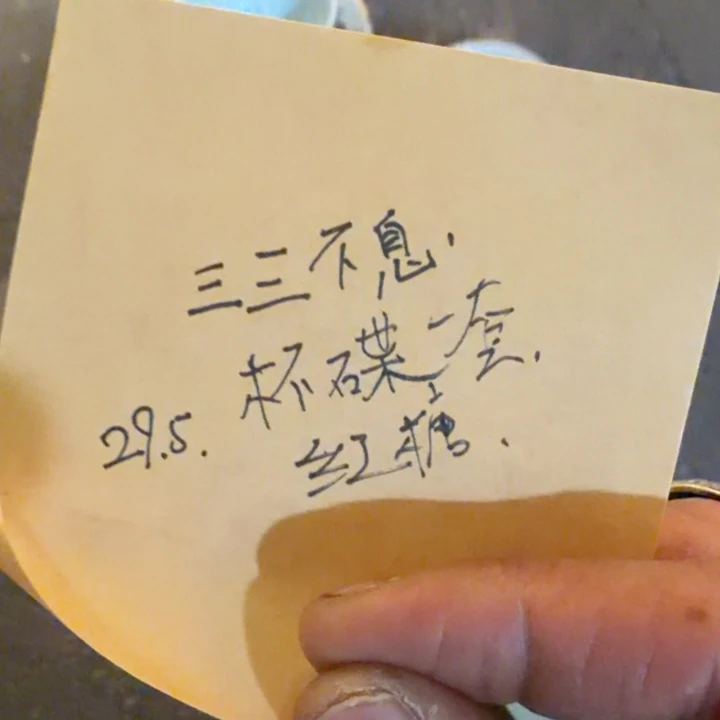 三三不息.
杯碟一套.
29.5.
红糖.